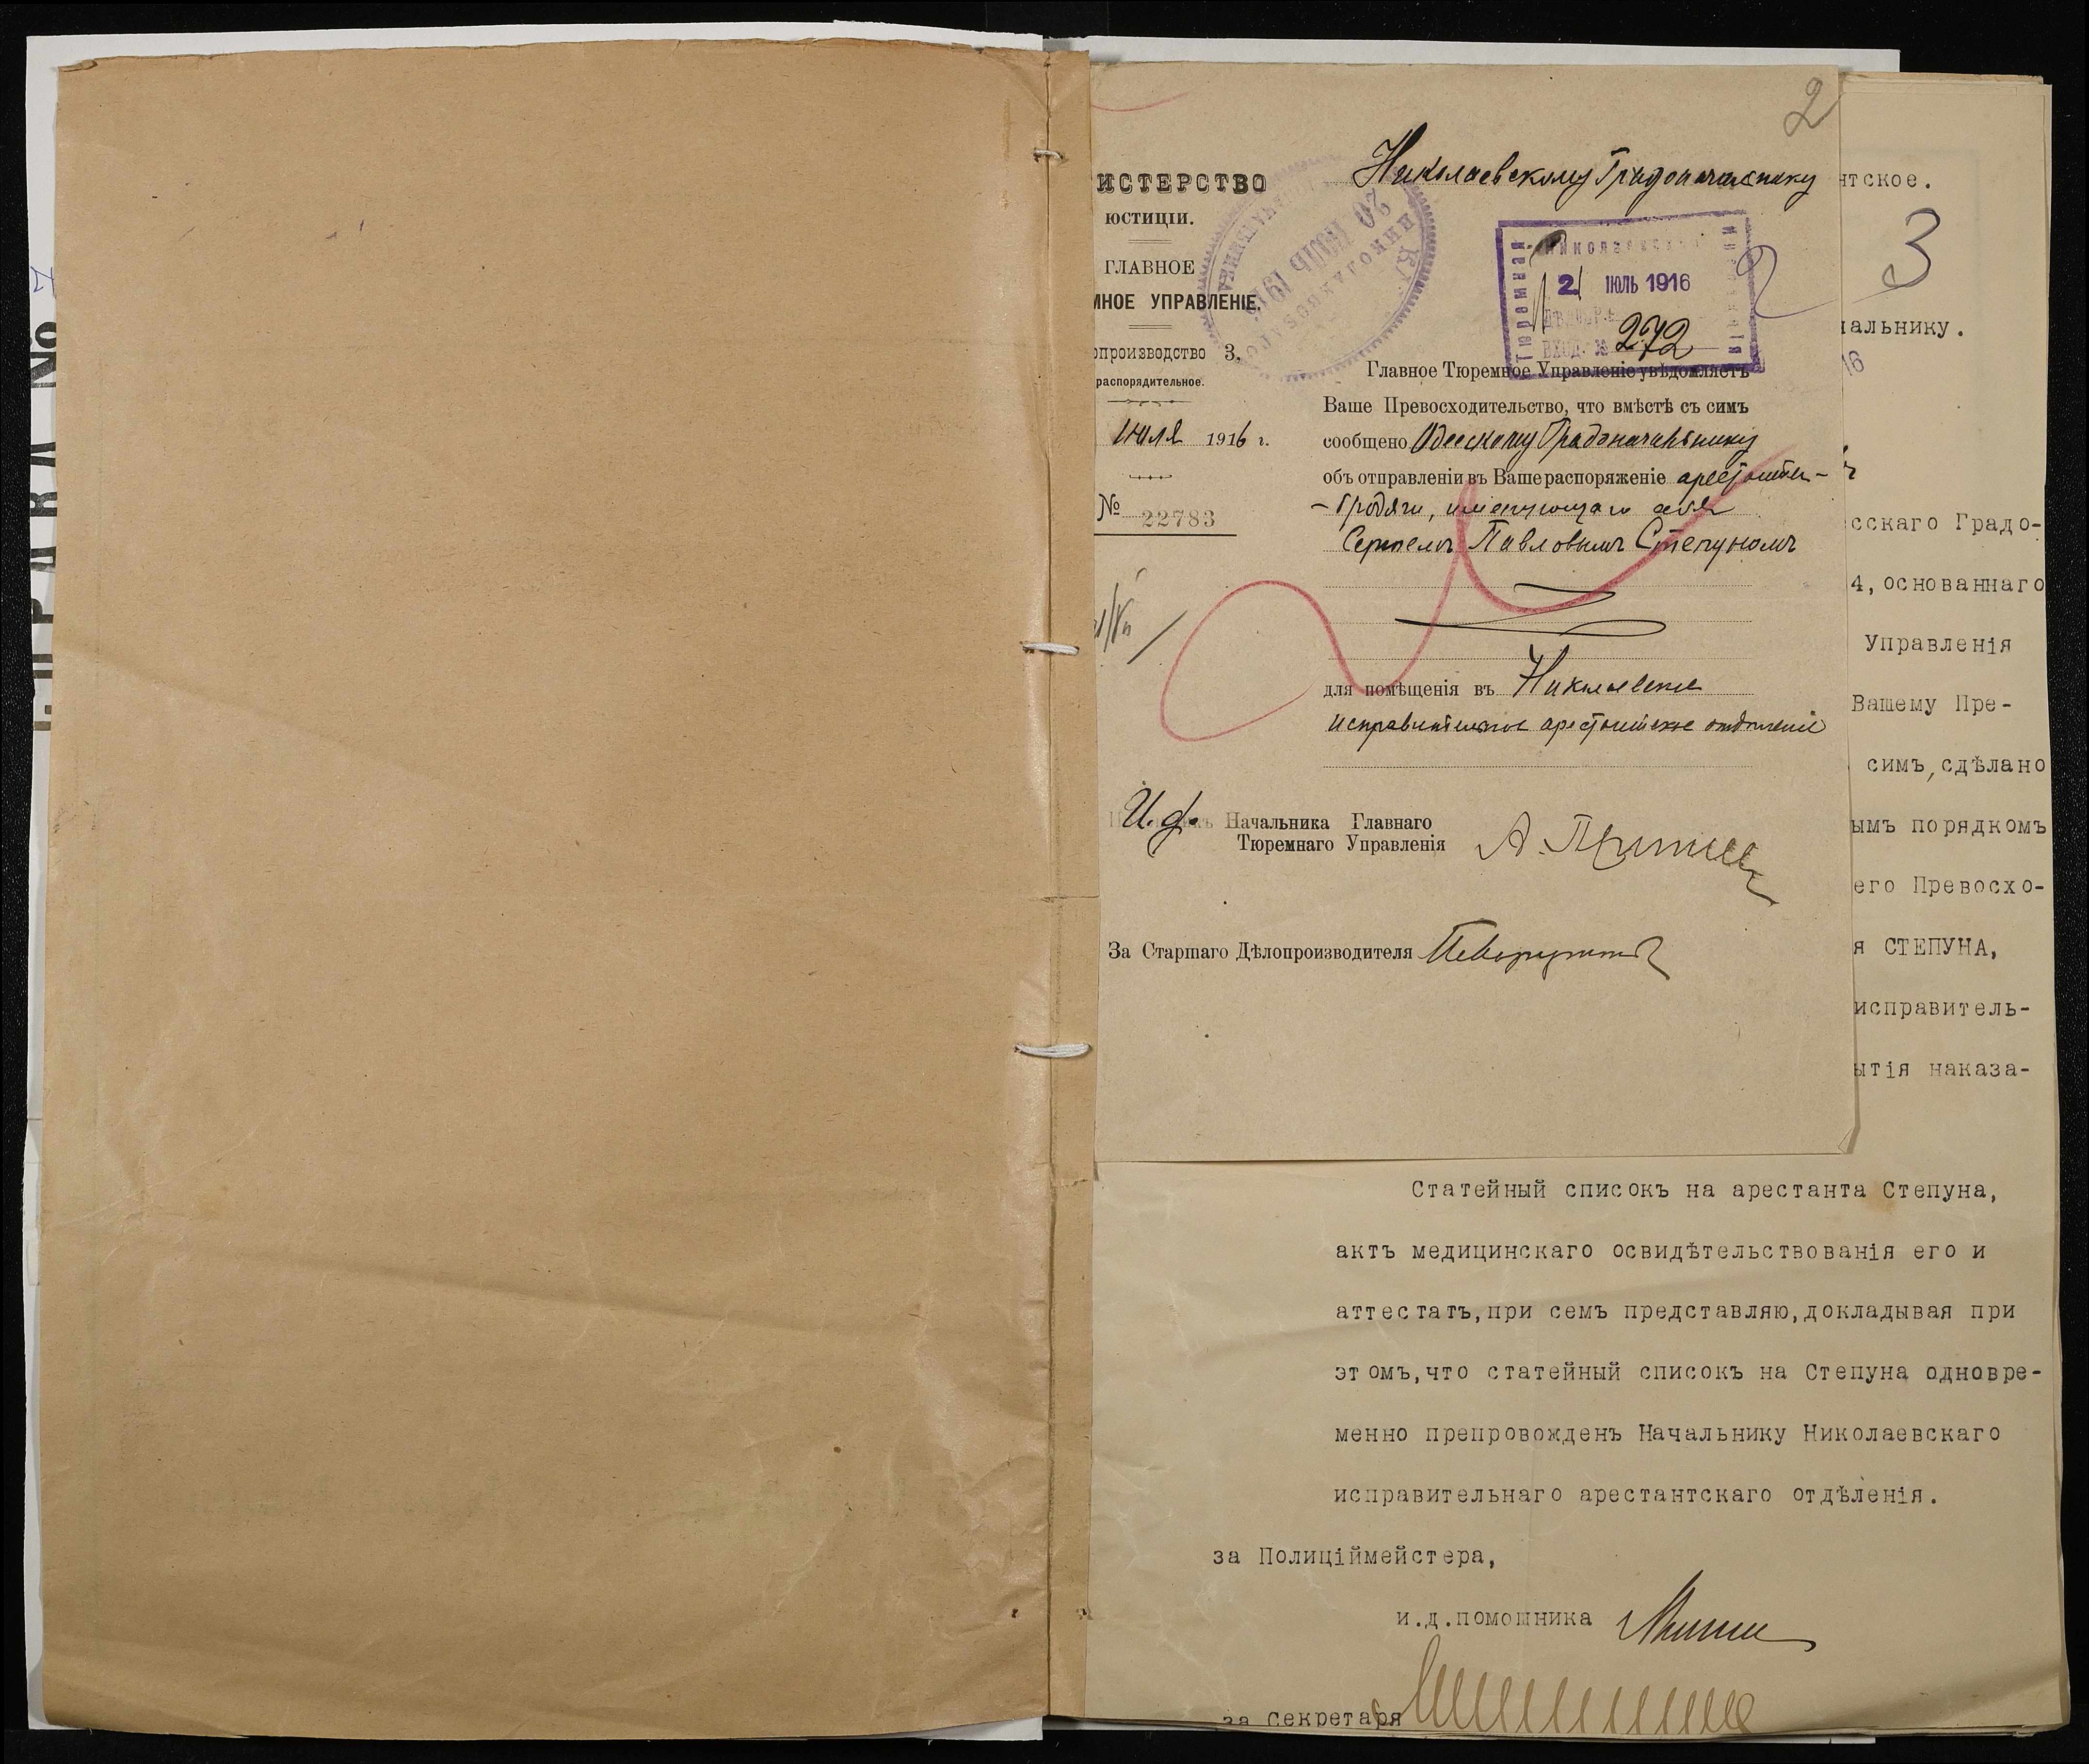 2
Николаевскому Градоначальнику
ИСТЕРСТВО
ЮСТИЦІИ.
ГЛАВНОЕ
МНОЕ УПРАВЛЕНІЕ.
опроизводство 3.
распорядительное.
июля 1916 г.
№ 22783
20 ІЮЛЬ 1916
Тюремная
Николаевск
21 ІЮЛЬ 1916
ВХОД. № 272
Главное Тюремное Управленіе увѣдомляетъ
Ваше Превосходительство, что вмѣстѣ съ симъ
сообщено Одесскому Градоначальнику
объ отправленіи въ Ваше распоряженіе арестанта-
-бродяги, именующаго себя
Сергѣемъ Павловымъ Степуномъ
для помѣщенія въ Николаевское
исправительное арестантское отдѣленіе
И. ф. Начальника Главнаго
Тюремнаго Управленія
За Старшаго Дѣлопроизводителя
нтское.
3
чальнику.
16
сскаго Градо-
4, основаннаго
Управленія
Вашему Пре-
симъ, сдѣлано
ымъ порядкомъ
его Превосхо-
я СТЕПУНА,
исправитель-
ытія наказа-
Статейный списокъ на арестанта Степуна,
актъ медицинскаго освидѣтельствованія его и
аттестатъ,при семъ представляю,докладывая при
этомъ,что статейный списокъ на Степуна одновре-
менно препровожденъ Начальнику Николаевскаго
исправительнаго арестантскаго отдѣленія.
за Полиціймейстера,
и.д.помошника
за Секретаря